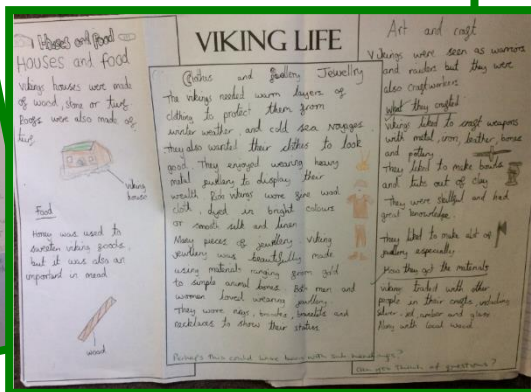 Houses and food
Houses and food
Vikings houses were made
of wood, stone or turf.
Roofs were also made of
turf
viking
house
Food
Honey was used to
sweeten viking foods.
but it was also an
important in mead
wood
VIKING LIFE
Clothes and jewellery Jewellery
The vikings needed warm layers of
clothing to protect them from
winter weather, and cold sea voyages.
They also wanted their clothes to look
good. They enjoyed wearing heavy
metal jewellery to display their
wealth. Rich vikings wore fine wool
cloth, dyed in bright colours
or smooth silk and linen
Many pieces of jewellery viking
jewellery was beautifully made
using materials ranging from gold
to simple animal bones. Both men and
women loved wearing jewellery.
They wore rings, brooches, bracelets and
necklaces to show their status.
Perhaps this could have been with sub headings?
Art and craft
Vikings were seen as warriors
and raiders but they were
also craftworkers
What they crafted
Vikings liked to craft weapons
with metal, iron, leather, bones
and pottery
They liked to make bowls
and pots out of clay
They were skillful and had
great knowledge.
They liked to make alot of
jewellery especially
How they got the materials
viking traded with other
people in their crafts, including
silver, amber and glass
Along with local wood
Can you think of questions?